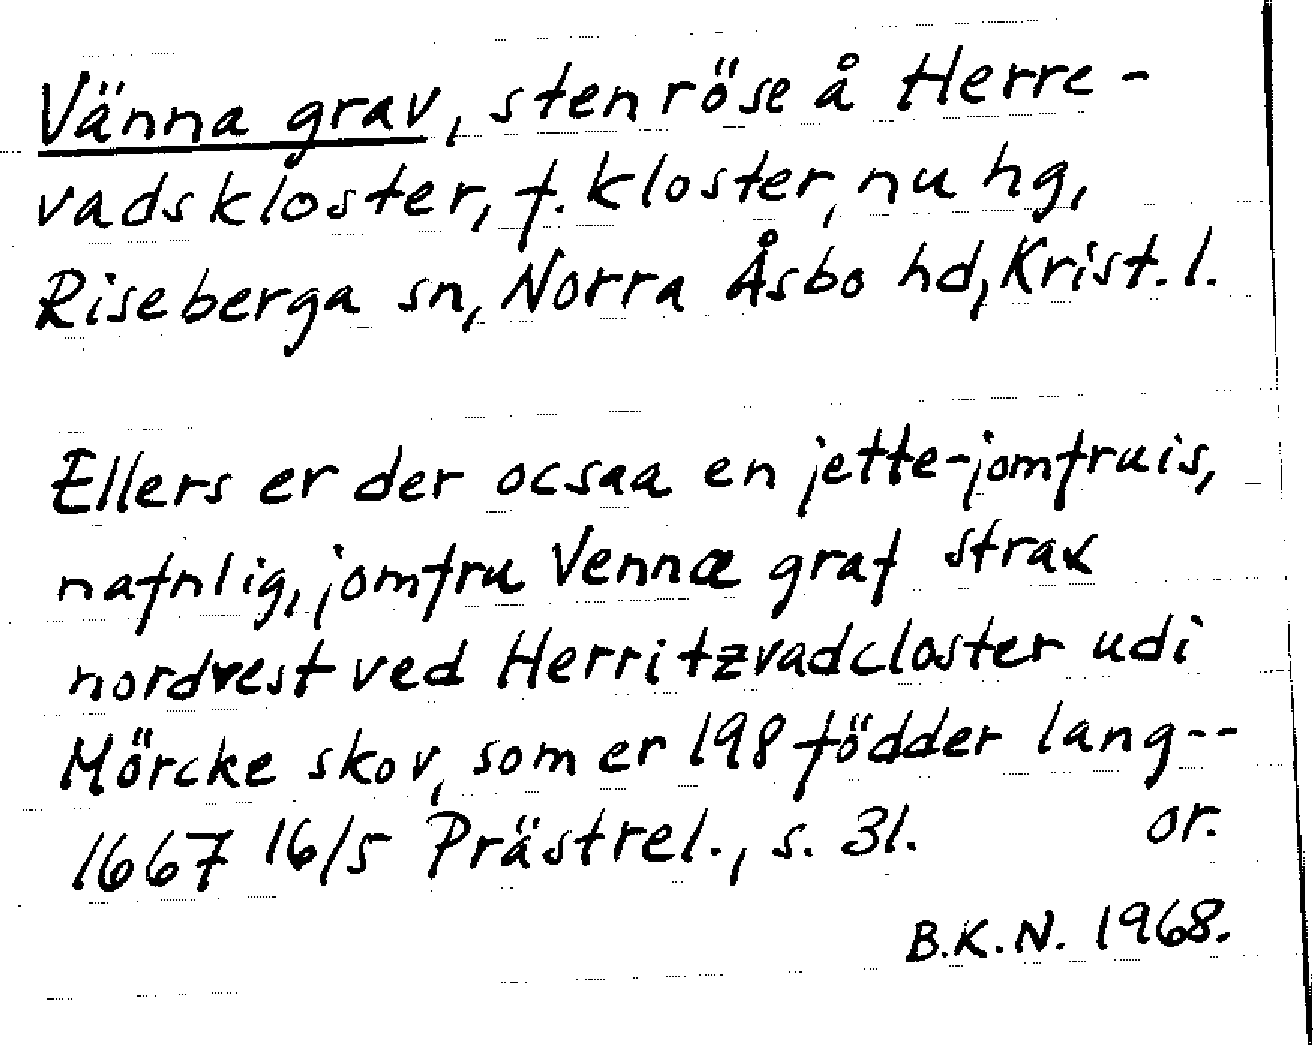 Vänna grav, stenröse å Herre-
vadskloster, f. kloster, nu hg,
Riseberga sn, Norra Åsbo hd, Krist. l.
Ellers er der ocsaa en jette-jomfruis,
nafnlig, jomfru Vennæ graf strax
nordvest ved Herritzvadcloster udi
Mörcke skov, som er 198 födder lang--
1667 16/5 Prästrel., s. 31. or.
B.K.N. 1968.